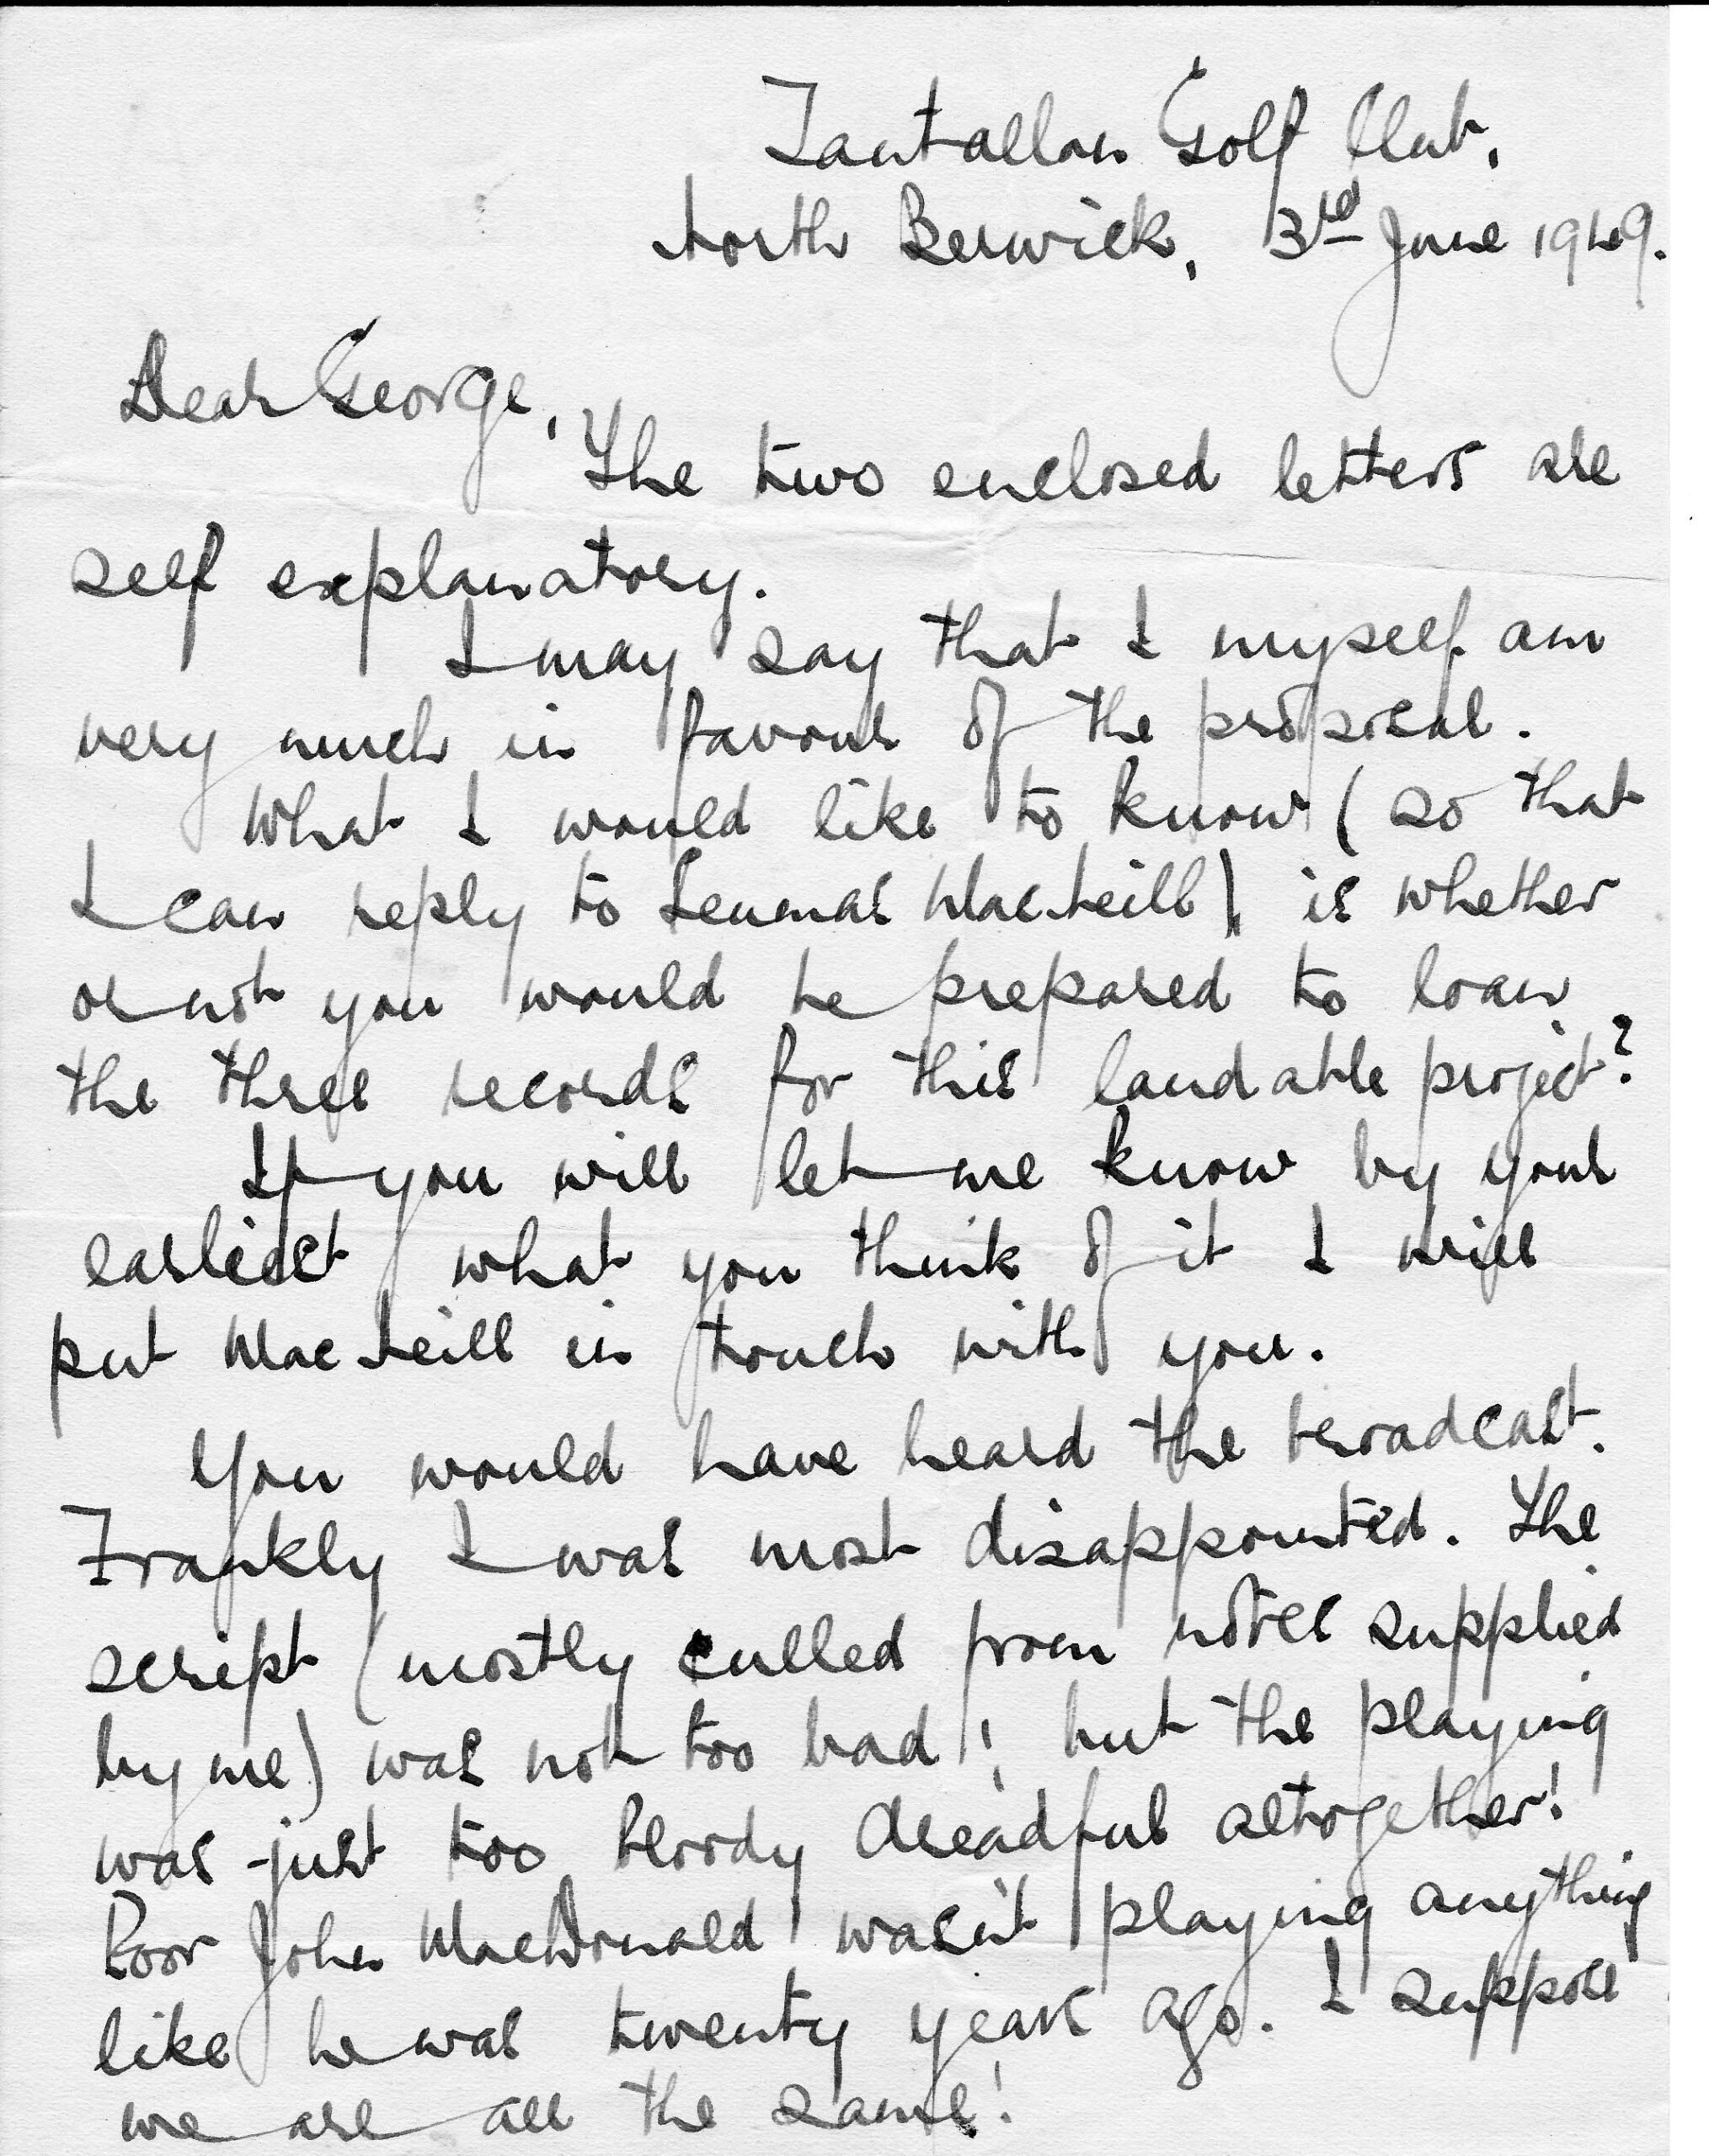 Tantallon Golf Club,
North Berwick, 3rd June 1949.
Dear George,
The two enclosed letters are
self explanatory.
I may say that I myself am
very much in favour of the proposal.
What I would like to know (so that
I can reply to Seumas MacNeill) is whether
or not you would be prepared to loan
the three records for this laudable project?
If you will let me know by your
earliest what you think of it I will
put MacNeill in touch with you.
You would have heard the broadcast.
Frankly I was most disappointed. The
script (mostly culled from notes supplied
by me) was not too bad; but the playing
was just too bloody dreadful altogether!
Poor John MacDonald wasn't playing anything
like he was twenty years ago. I suppose
we are all the same!